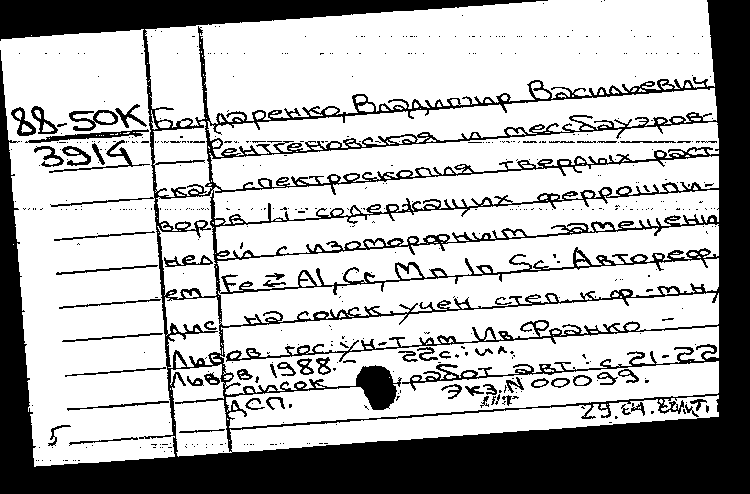 88-50К
3914
Бондаренко, Владимир Васильевич
Рентгеновская и мессбауэров-
ская спектроскопия твердых раст-
воров Li-содержащих феррошпи-
нелей с изоморфным замещени
ем Fe ⇄ Al, Cr, Mn, In, Sc: Автореф.
дис на соиск. учен. степ. к. ф.-м.н,
Львов. гос. ун-т им Ив. Франко -
Львов, 1988. - 22с.: ил.
Список работ авт.: с. 21-22
ДСП. Экз. N 00099.
5